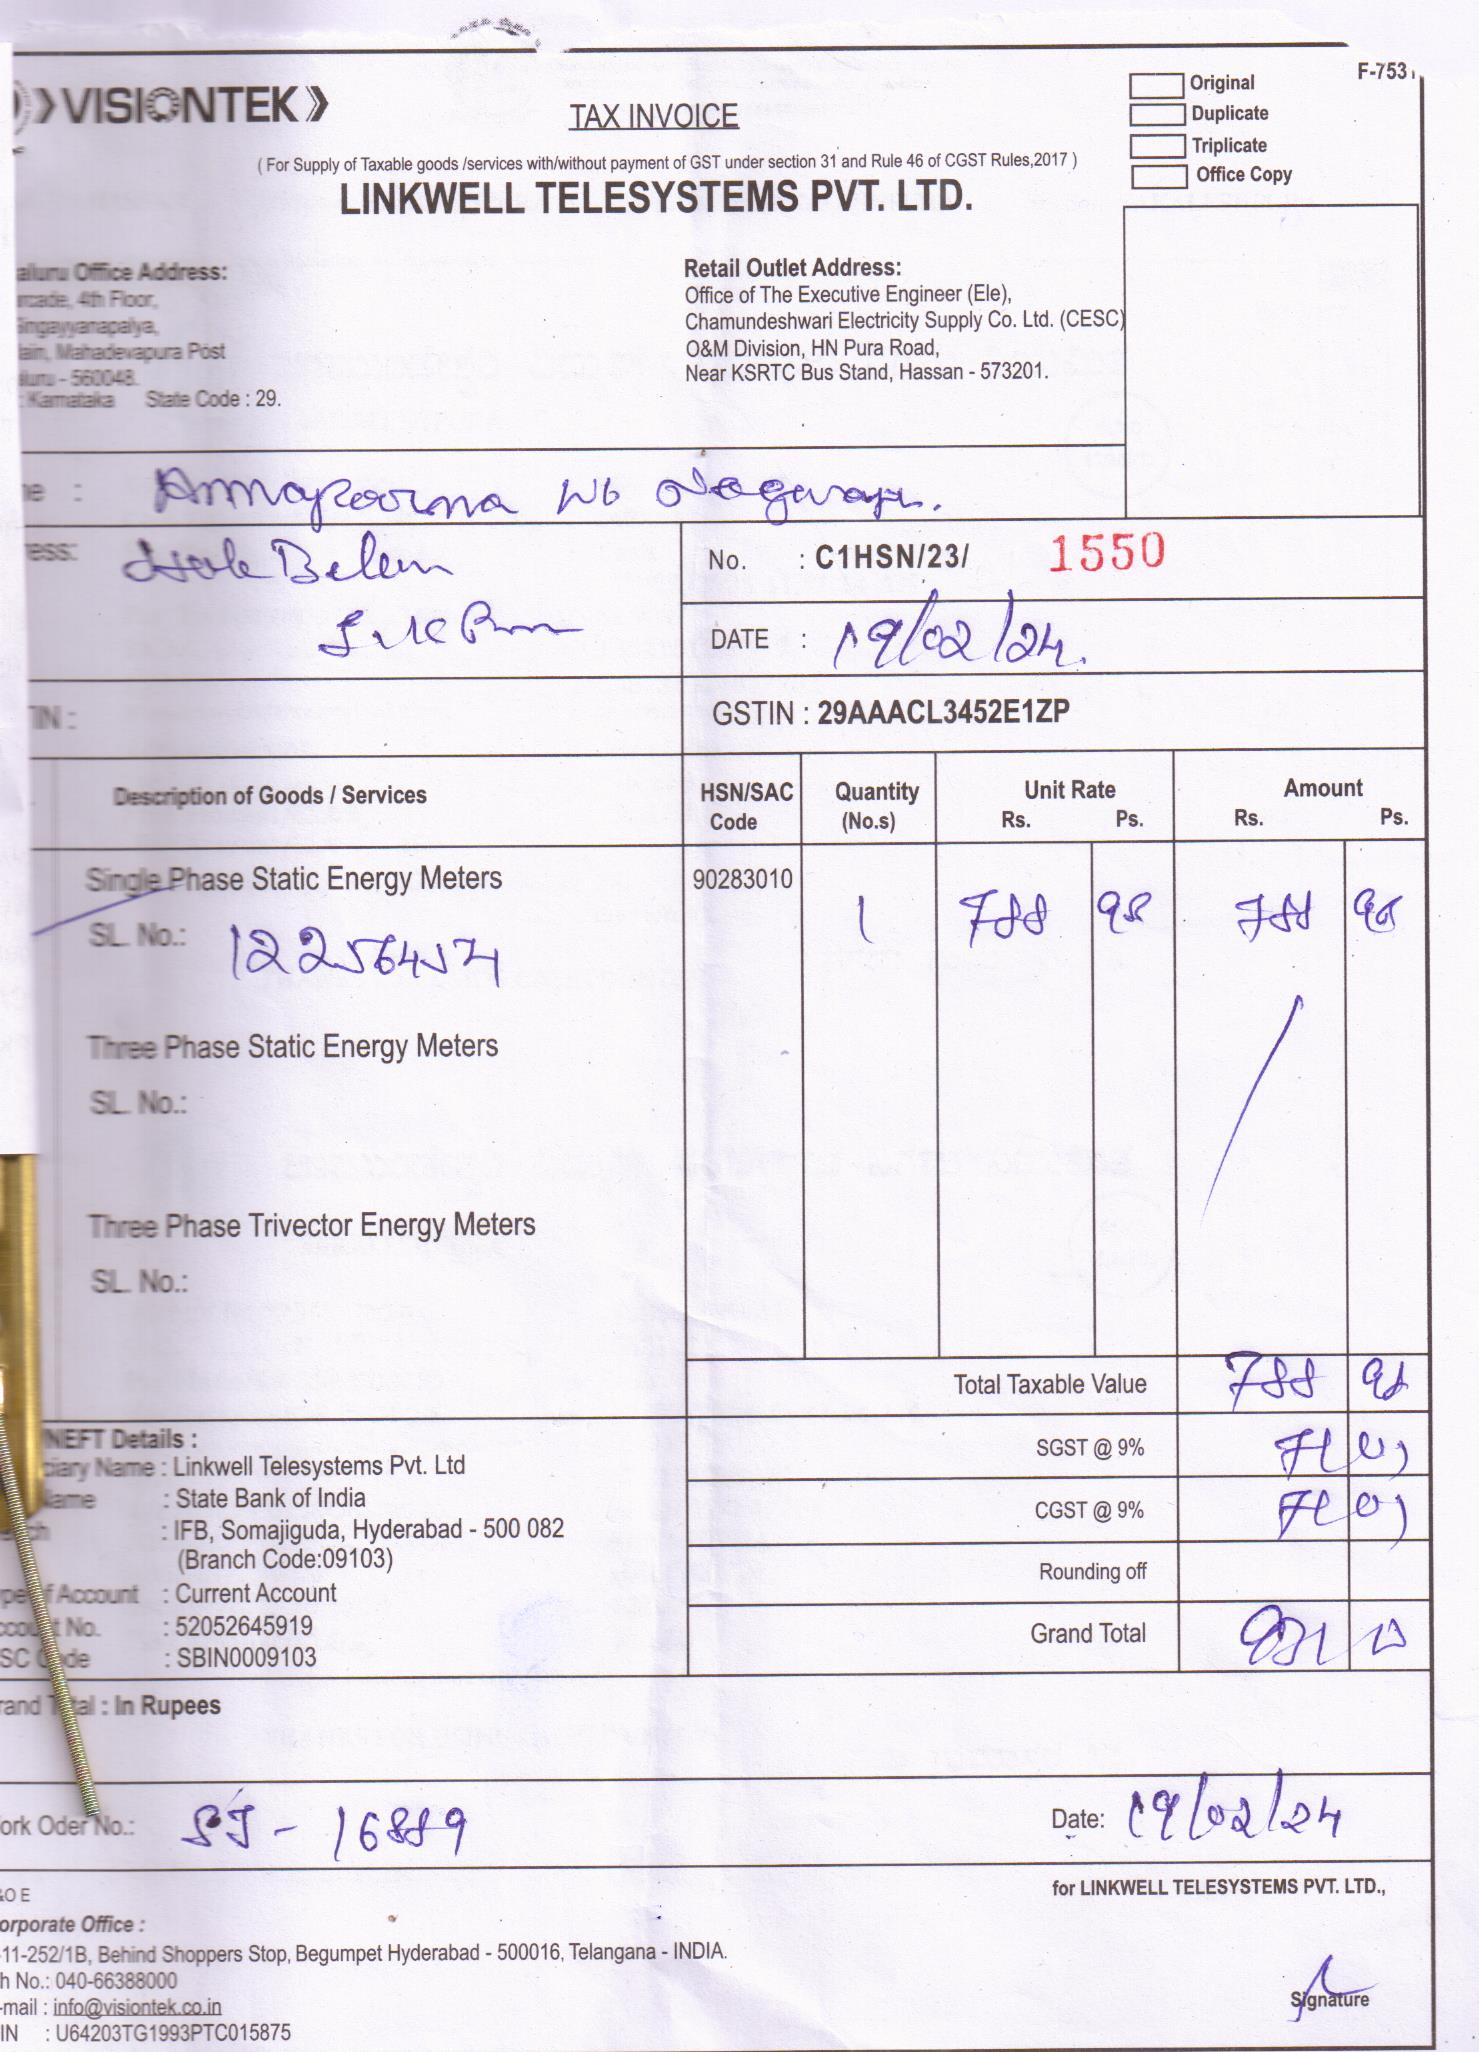 VISIONTEK
TAX INVOICE
Original
Duplicate
Triplicate
Office Copy
F-753
( For Supply of Taxable goods /services with/without payment of GST under section 31 and Rule 46 of CGST Rules,2017 )
LINKWELL TELESYSTEMS PVT. LTD.
aluru Office Address:
rcade, 4th Floor,
Singayyanapalya,
ain, Mahadevapura Post
aluru - 560048.
: Karnataka State Code : 29.
Retail Outlet Address:
Office of The Executive Engineer (Ele),
Chamundeshwari Electricity Supply Co. Ltd. (CESC)
O&M Division, HN Pura Road,
Near KSRTC Bus Stand, Hassan - 573201.
me : Annapoorna
ress:
No. : C1HSN/23/ 1550
DATE : 19/02/24.
TIN :
GSTIN : 29AAACL3452E1ZP
Description of Goods / Services HSN/SAC Code Quantity (No.s) Unit Rate Rs. Ps. Amount Rs. Ps.
Single Phase Static Energy Meters 90283010 1 788 98 788 98
SL. No.: 12256454
Three Phase Static Energy Meters
SL. No.:
Three Phase Trivector Energy Meters
SL. No.:
Total Taxable Value 788 98
SGST @ 9% 71 01
CGST @ 9% 71 01
Rounding off
Grand Total 931
/NEFT Details :
ciary Name : Linkwell Telesystems Pvt. Ltd
Name : State Bank of India
: IFB, Somajiguda, Hyderabad - 500 082
(Branch Code:09103)
ype of Account : Current Account
ccount No. : 52052645919
SC Code : SBIN0009103
rand Total : In Rupees
ork Oder No.: SJ - 16889
Date: 19/02/24
for LINKWELL TELESYSTEMS PVT. LTD.,
&O E
orporate Office :
-11-252/1B, Behind Shoppers Stop, Begumpet Hyderabad - 500016, Telangana - INDIA.
h No.: 040-66388000
-mail : info@visiontek.co.in
IN : U64203TG1993PTC015875
Signature